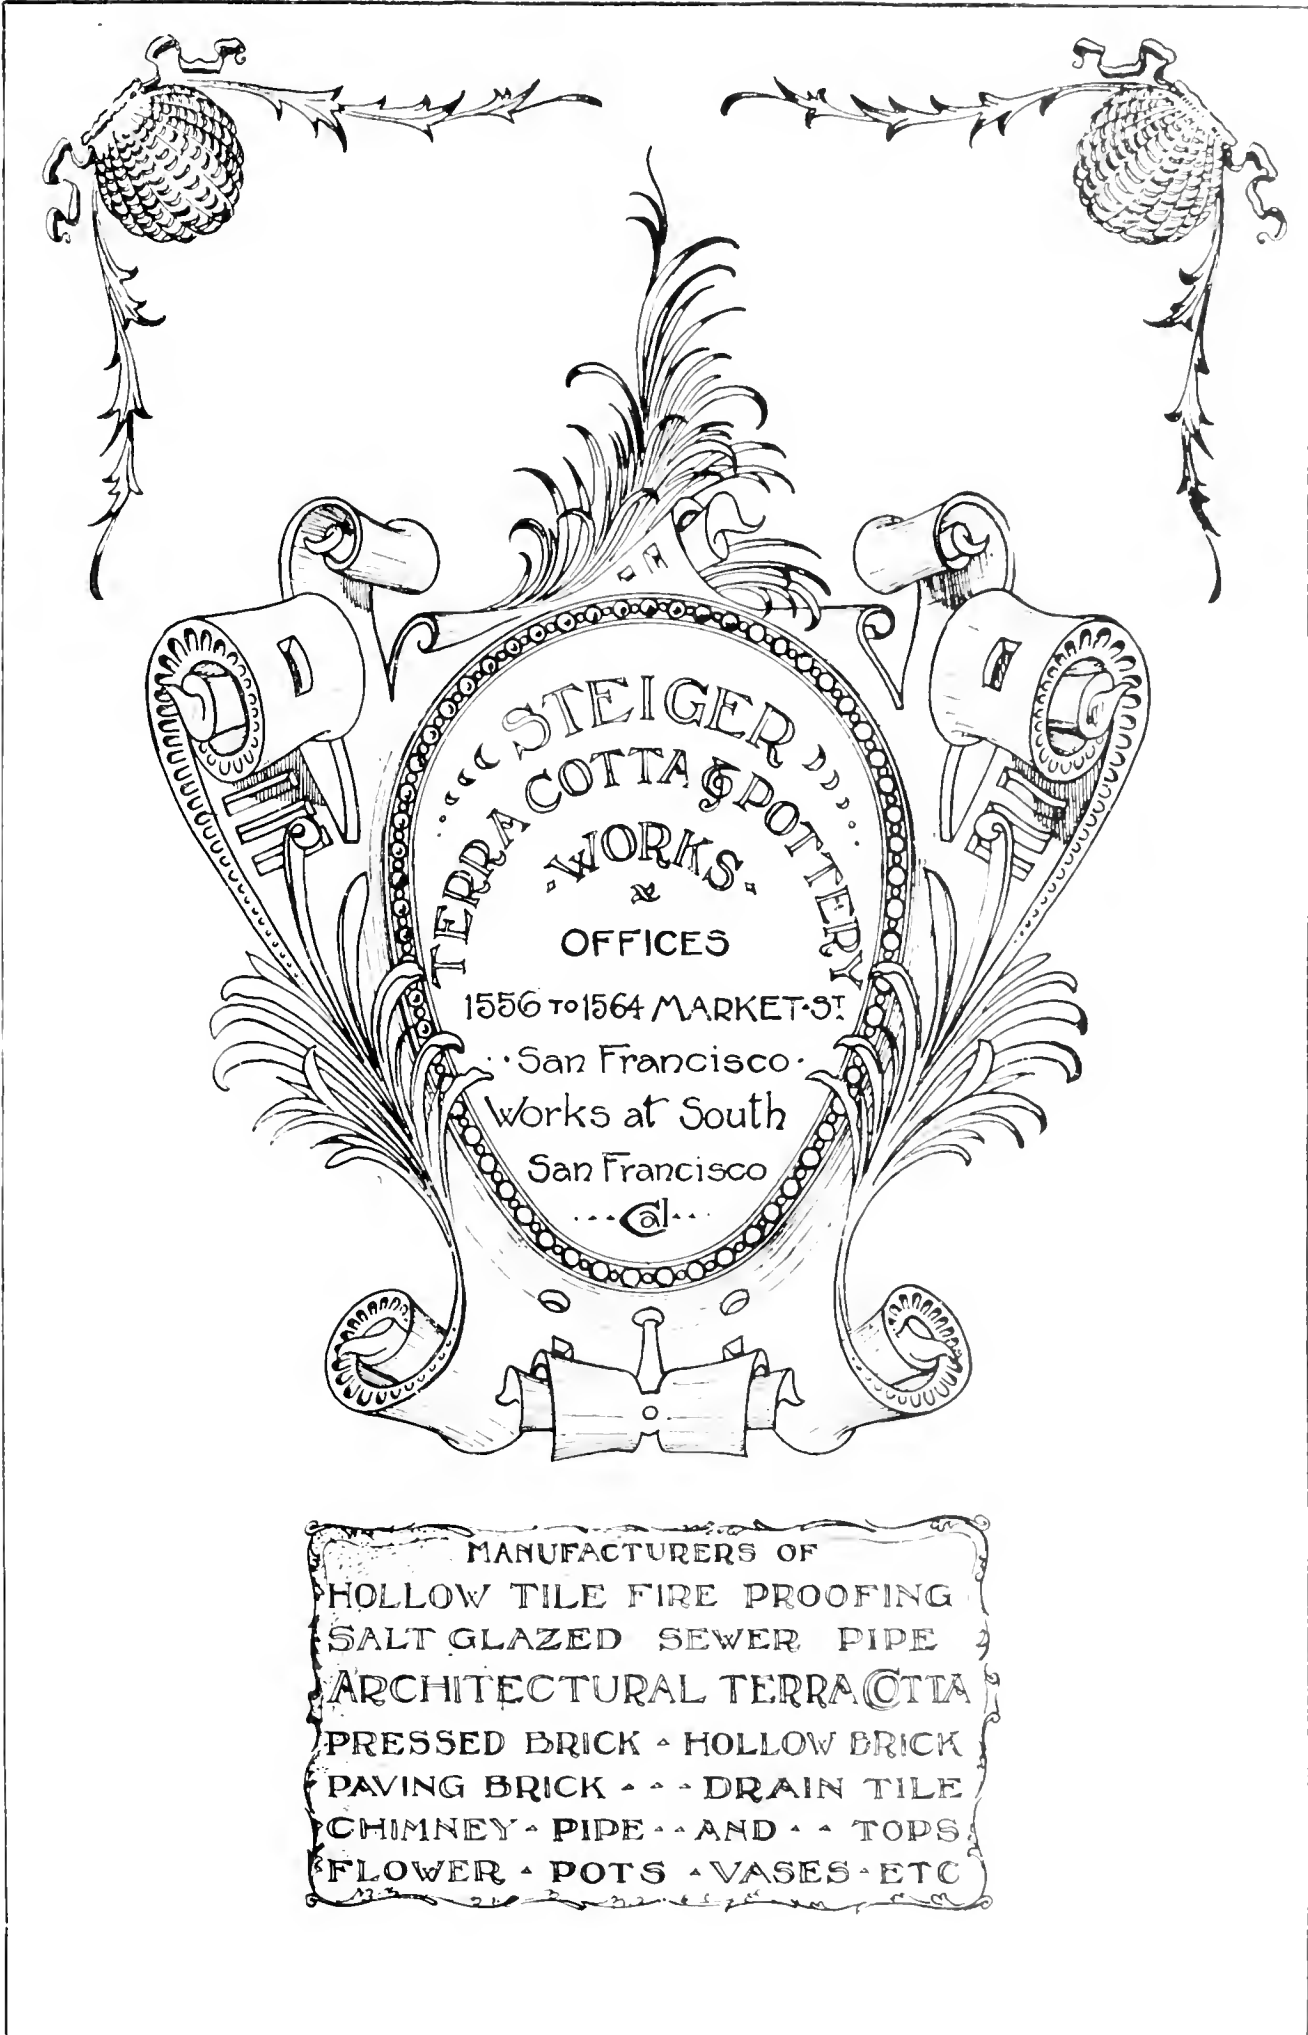 STEIGER
TERRA COTTA & POTTERY
WORKS
OFFICES
1556 TO 1564 MARKET·ST
San Francisco
Works at South
San Francisco
Cal
MANUFACTURERS OF
HOLLOW TILE FIRE PROOFING
SALT GLAZED SEWER PIPE
ARCHITECTURAL TERRA COTTA
PRESSED BRICK - HOLLOW BRICK
PAVING BRICK - - - DRAIN TILE
CHIMNEY - PIPE - - AND - - TOPS
FLOWER - POTS - VASES - ETC